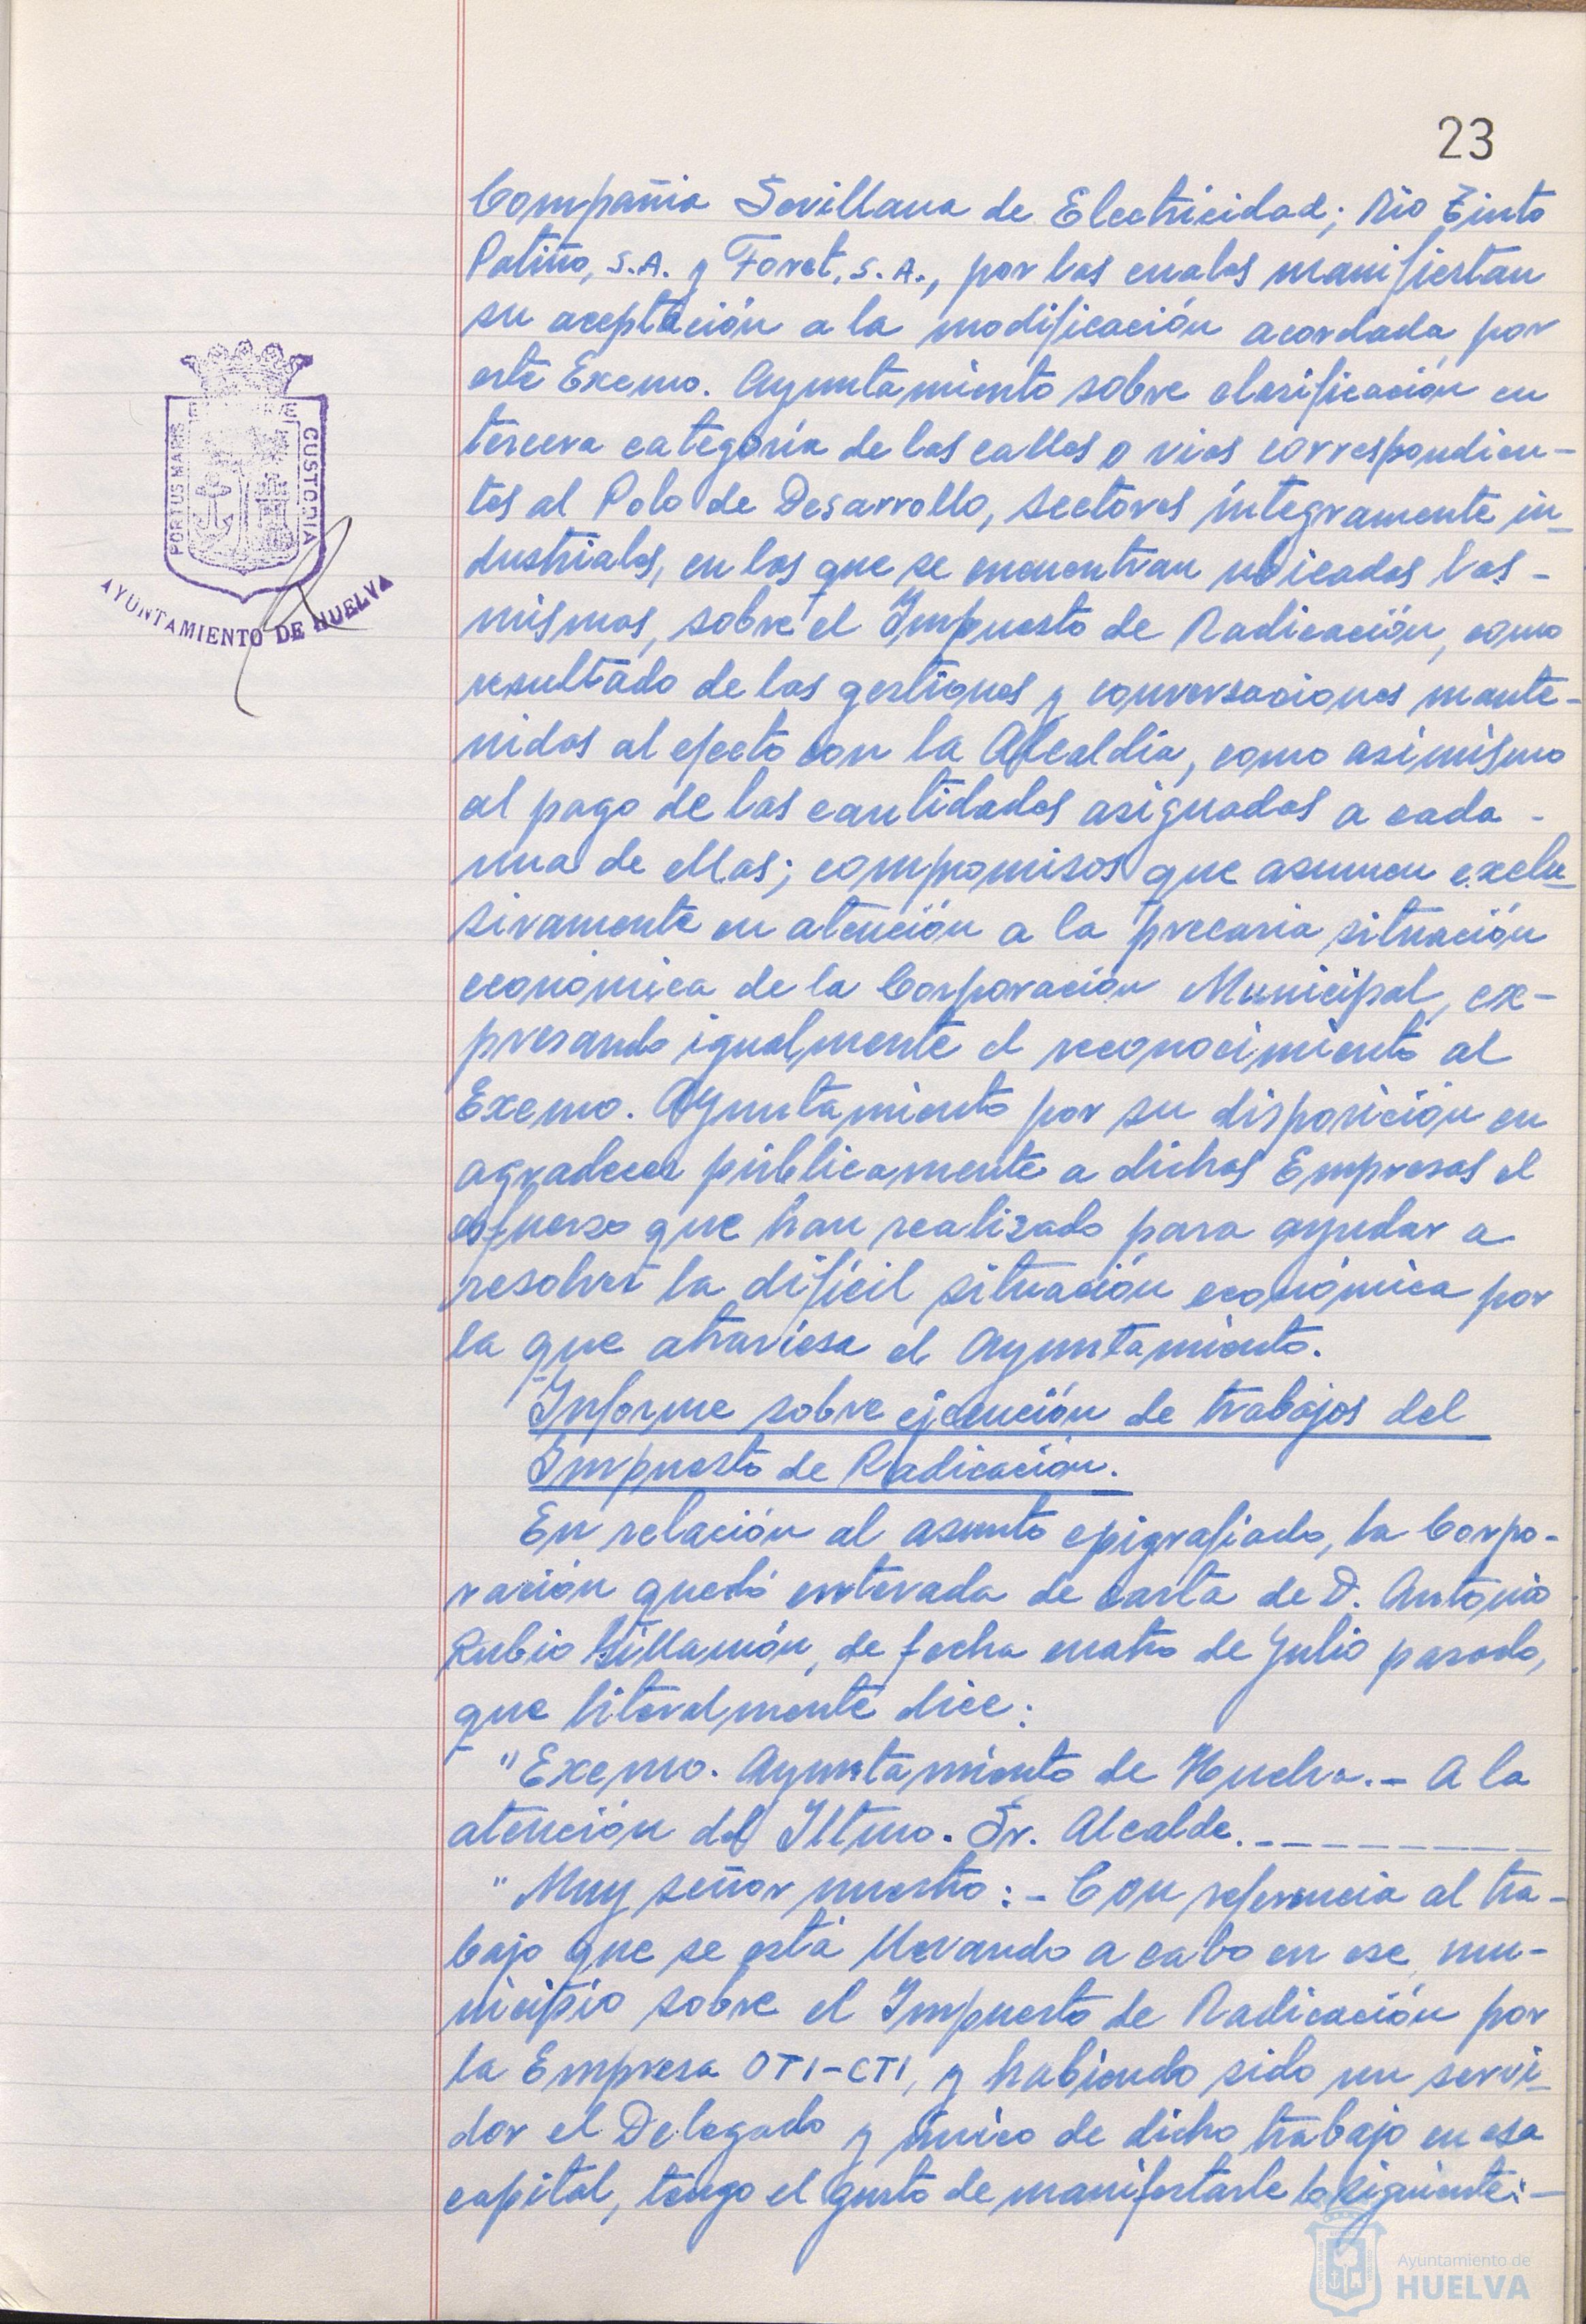 23
Compañia Sevillana de Electricidad; Rio Tinto
Patiño, S.A. y Foret, S.A., por las cuales manifiestan
su aceptación a la modificación acordada por
este Excmo. Ayuntamiento sobre clasificación en
tercera categoría de las calles o vias correspondien-
tes al Polo de Desarrollo, sectores íntegramente in-
dustriales, en los que se encuentran ubicadas las -
mismas, sobre el Impuesto de Radicación, como
resultado de las gestiones y conversaciones mante-
nidas al efecto con la Alcaldía, como asimismo
al pago de las cantidades asignadas a cada -
una de ellas; compromisos que asumen exclu-
sivamente en atención a la precaria situación
económica de la Corporación Municipal, ex-
presando igualmente el reconocimiento al
Excmo. Ayuntamiento por su disposición en
agradecer públicamente a dichas Empresas el
esfuerzo que han realizado para ayudar a
resolver la difícil situación económica por
la que atraviesa el Ayuntamiento.
Informe sobre ejecución de trabajos del
Impuesto de Radicación.
En relación al asunto epigrafiado, la Corpo-
ración quedó enterada de carta de D. Antonio
Rubio Villamón, de fecha cuatro de Julio pasado,
que literalmente dice:
"Excmo. Ayuntamiento de Huelva.- A la
atención del Iltmo. Sr. Alcalde.- - - - - - - -
"Muy señor nuestro:- Con referencia al tra-
bajo que se está llevando a cabo en ese mu-
nicipio sobre el Impuesto de Radicación por
la Empresa OTI-CTI, y habiendo sido un servi-
dor el Delegado y único de dicho trabajo en esa
capital, tengo el gusto de manifestarle lo siguiente:-
PORTUS MARIS
CUSTODIA
AYUNTAMIENTO DE HUELVA
Ayuntamiento de
HUELVA